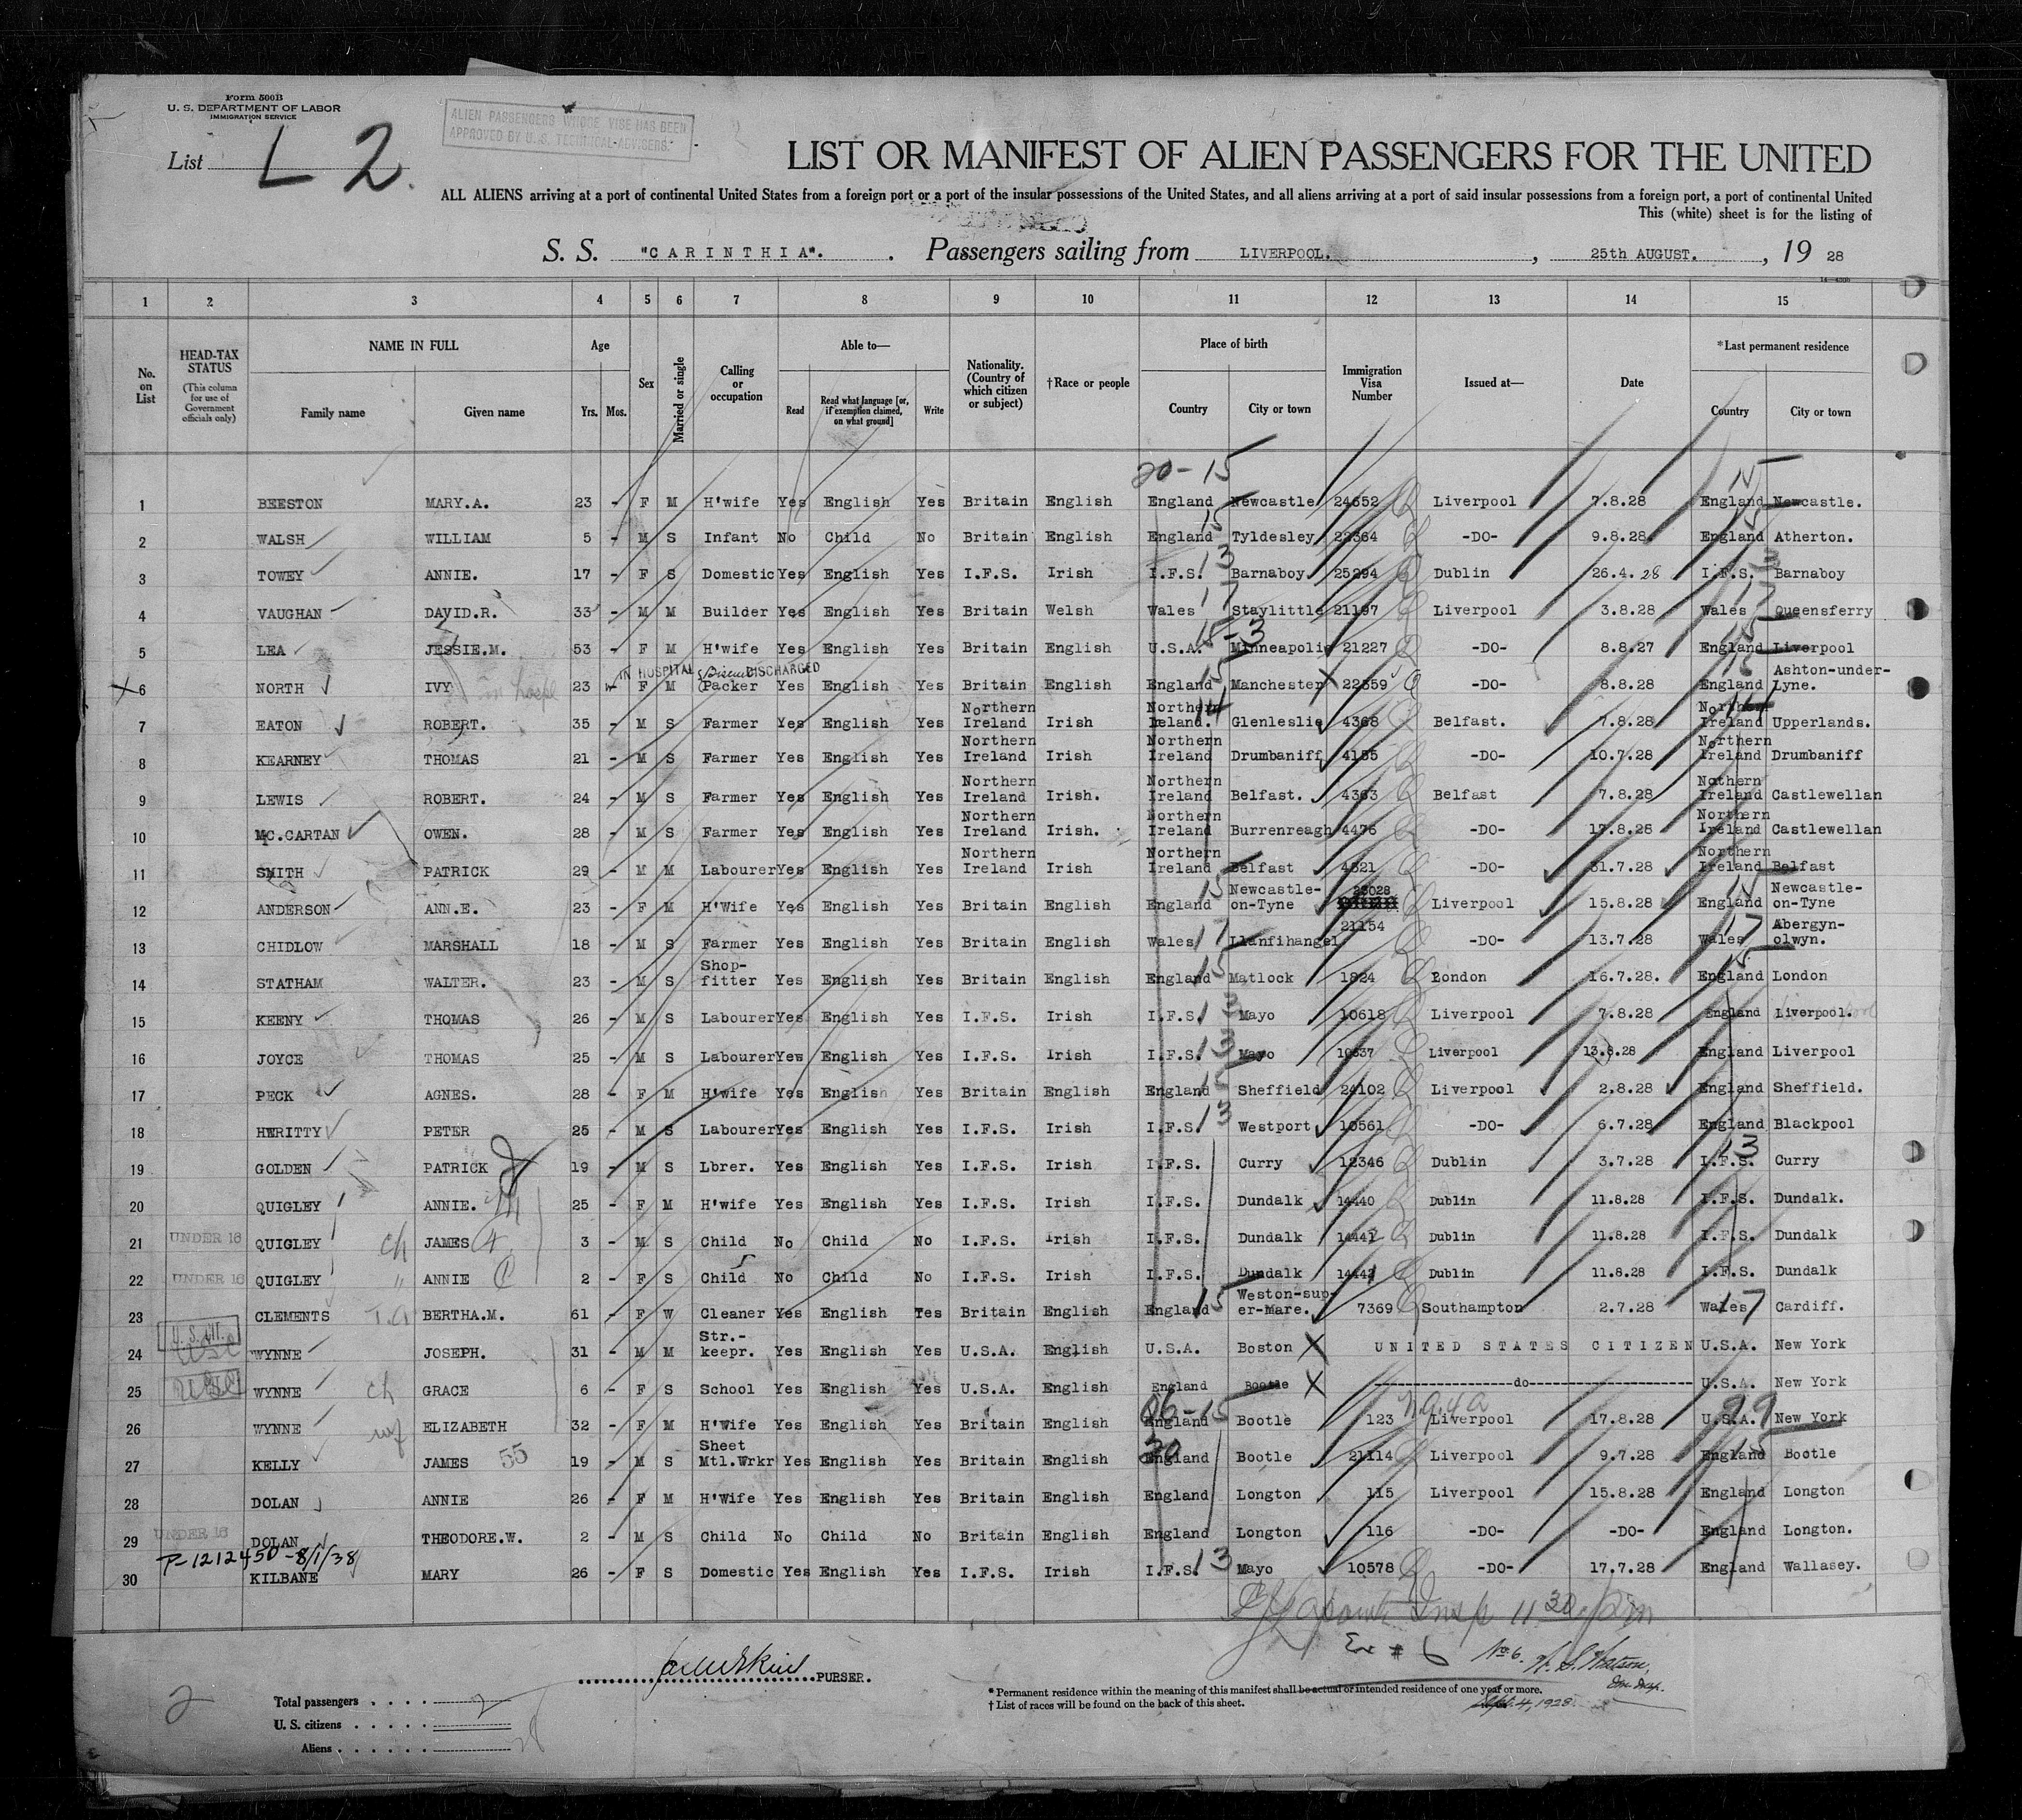 Form 500B
U. S. DEPARTMENT OF LABOR
IMMIGRATION SERVICE
List L 2.
ALIEN PASSENGERS WHOSE VISE HAS BEEN
APPROVED BY U.S. TECHNICAL ADVISERS.
LIST OR MANIFEST OF ALIEN PASSENGERS FOR THE UNITED
ALL ALIENS arriving at a port of continental United States from a foreign port or a port of the insular possessions of the United States, and all aliens arriving at a port of said insular possessions from a foreign port, a port of continental United
This (white) sheet is for the listing of
S. S. "CARINTHIA". Passengers sailing from LIVERPOOL. , 25th AUGUST. , 19 28
1 2 3 4 5 6 7 8 9 10 11 12 13 14 15
No. on List HEAD-TAX STATUS (This column for use of Government officials only) NAME IN FULL Family name Given name Age Yrs. Mos. Sex Married or single Calling or occupation Able to— Read Read what language [or, if exemption claimed, on what ground] Write Nationality. (Country of which citizen or subject) †Race or people Place of birth Country City or town Immigration Visa Number Issued at— Date *Last permanent residence Country City or town
20-15 15
1 BEESTON MARY.A. 23 - F M H'wife Yes English Yes Britain English England Newcastle 24652 Liverpool 7.8.28 England Newcastle.
2 WALSH WILLIAM 5 - M S Infant No Child No Britain English England 15 Tyldesley 22364 -DO- 9.8.28 England Atherton.
3 TOWEY ANNIE. 17 - F S Domestic Yes English Yes I.F.S. Irish I.F.S. 13 Barnaboy 25294 Dublin 26.4.28 I.F.S. Barnaboy
4 VAUGHAN DAVID.R. 33 - M M Builder Yes English Yes Britain Welsh Wales 17 Staylittle 21197 Liverpool 3.8.28 Wales 17 Queensferry
5 LEA JESSIE.M. 53 - F M H'wife Yes English Yes Britain English U.S.A. Minneapolis 21227 -DO- 8.8.27 England Liverpool
IN HOSPITAL DISCHARGED
6 NORTH IVY 23 F M Packer Yes English Yes Britain English England 15 Manchester 22559 -DO- 8.8.28 England 15 Ashton-under-Lyne.
7 EATON ROBERT. 35 - M S Farmer Yes English Yes Northern Ireland Irish Northern Ireland. 14 Glenleslie 4368 Belfast. 7.8.28 Northern Ireland 14 Upperlands.
8 KEARNEY THOMAS 21 - M S Farmer Yes English Yes Northern Ireland Irish Northern Ireland Drumbaniff 4155 -DO- 10.7.28 Northern Ireland Drumbaniff
9 LEWIS ROBERT. 24 - M S Farmer Yes English Yes Northern Ireland Irish. Northern Ireland Belfast. 4363 Belfast 7.8.28 Nothern Ireland Castlewellan
10 MC.CARTAN OWEN. 28 - M S Farmer Yes English Yes Northern Ireland Irish. Northern Ireland Burrenreagh 4476 -DO- 17.8.28 Northern Ireland Castlewellan
11 SMITH PATRICK 29 - M M Labourer Yes English Yes Northern Ireland Irish Northern Ireland Belfast 4321 -DO- 31.7.28 Northern Ireland Belfast
12 ANDERSON ANN.E. 23 - F M H'Wife Yes English Yes Britain English England 15 Newcastle-on-Tyne 23028 Liverpool 15.8.28 England 15 Newcastle-on-Tyne
13 CHIDLOW MARSHALL 18 - M S Farmer Yes English Yes Britain English Wales 17 Llanfihangel 21154 -DO- 13.7.28 Wales 17 Abergyn-olwyn.
14 STATHAM WALTER. 23 - M S Shop-fitter Yes English Yes Britain English England 15 Matlock 1824 London 16.7.28. England 15 London
15 KEENY THOMAS 26 - M S Labourer Yes English Yes I.F.S. Irish I.F.S. 13 Mayo 10618 Liverpool 7.8.28 England Liverpool.
16 JOYCE THOMAS 25 - M S Labourer Yes English Yes I.F.S. Irish I.F.S. 13 Mayo 10637 Liverpool 13.8.28 England Liverpool
17 PECK AGNES. 28 - F M H'wife Yes English Yes Britain English England 15 Sheffield 24102 Liverpool 2.8.28 England Sheffield.
18 HERITTY PETER 25 - M S Labourer Yes English Yes I.F.S. Irish I.F.S. 13 Westport 10561 -DO- 6.7.28 England Blackpool
19 GOLDEN PATRICK 19 - M S Lbrer. Yes English Yes I.F.S. Irish I.F.S. Curry 12346 Dublin 3.7.28 I.F.S. 13 Curry
20 QUIGLEY ANNIE. 25 - F M H'wife Yes English Yes I.F.S. Irish I.F.S. Dundalk 14440 Dublin 11.8.28 I.F.S. Dundalk.
21 UNDER 16 QUIGLEY ch JAMES 3 - M S Child No Child No I.F.S. Irish I.F.S. Dundalk 14441 Dublin 11.8.28 I.F.S. Dundalk
22 UNDER 16 QUIGLEY " ANNIE 2 - F S Child No Child No I.F.S. Irish I.F.S. Dundalk 14442 Dublin 11.8.28 I.F.S. Dundalk
23 CLEMENTS BERTHA.M. 61 - F W Cleaner Yes English Yes Britain English England 15 Weston-sup-er-Mare. 7369 Southampton 2.7.28 Wales 17 Cardiff.
24 U.S. CIT. USC WYNNE JOSEPH. 31 - M M Str.-keepr. Yes English Yes U.S.A. English U.S.A. Boston X UNITED STATES CITIZEN U.S.A. New York
25 USC WYNNE ch GRACE 6 - F S School Yes English Yes U.S.A. English England Bootle X do U.S.A. New York
26 WYNNE wf ELIZABETH 32 - F M H'Wife Yes English Yes Britain English England 06-15 Bootle 123 Liverpool 17.8.28 U.S.A. 99 New York
27 KELLY JAMES 55 19 - M S Sheet Mtl.Wrkr Yes English Yes Britain English England 20 Bootle 21114 Liverpool 9.7.28 England 15 Bootle
28 DOLAN ANNIE 26 - F M H'Wife Yes English Yes Britain English England Longton 115 Liverpool 15.8.28 England Longton
29 UNDER 16 DOLAN THEODORE.W. 2 - M S Child No Child No Britain English England Longton 116 -DO- -DO- England Longton.
P-1212450-8/1/38
30 KILBANE MARY 26 - F S Domestic Yes English Yes I.F.S. Irish I.F.S. 13 Mayo 10578 -DO- 17.7.28 England Wallasey.
Insp 11 30 pm
Ex # 6 No 6. Watson,
PURSER.
2
Total passengers 2
U. S. citizens
Aliens
*Permanent residence within the meaning of this manifest shall be actual or intended residence of one year or more.
†List of races will be found on the back of this sheet.
Sept. 4, 1928.